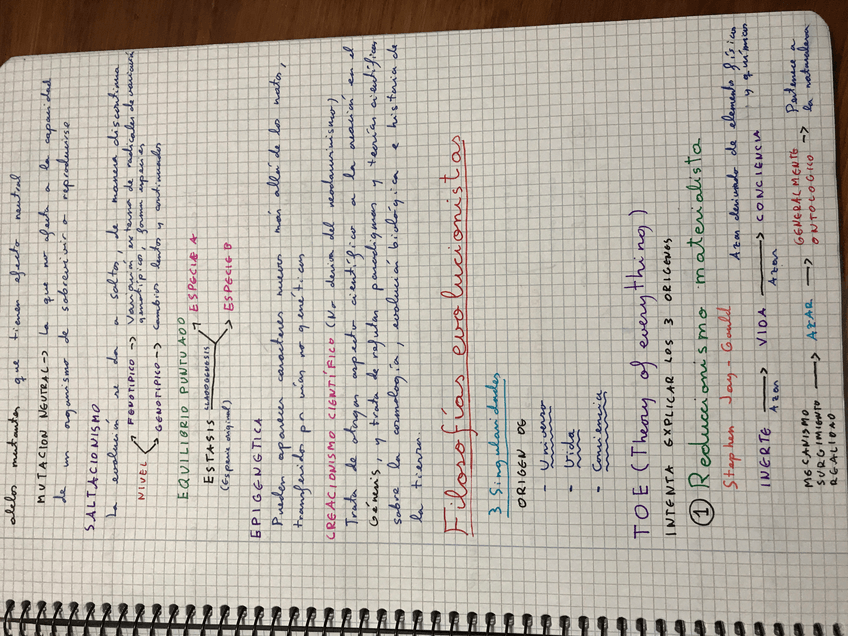 alelos mutantes que tienen efecto neutral
MUTACIÓN NEUTRAL -> La que no afecta a la capacidad
de un organismo de sobrevivir o reproducirse
SALTACIONISMO
La evolución se da a saltos, de manera discontinua
NIVEL
FENOTÍPICO -> Variación externa de radicales de variación
genotípica, forma especies
GENOTÍPICO -> Cambios lentos y continuados
EQUILIBRIO PUNTUADO
ESTASIS CLADOGENESIS
(Especie original)
ESPECIE A
ESPECIE B
EPIGENETICA
Pueden aparecer caracteres nuevos más allá de lo nato,
transferidos por vías no genéticas
CREACIONISMO CIENTÍFICO (No deriva del neodarwinismo)
Trata de otorgar aspecto científico a la creación en el
Génesis, y trata de refutar paradigmas y teorías científicas
sobre la cosmología, evolución biológica e historia de
la tierra.
Filosofías evolucionistas
3 Singularidades
ORIGEN DE
- Universo
- Vida
- Conciencia
TOE (Theory of everything)
INTENTA EXPLICAR LOS 3 ORIGENES
1 Reduccionismo materialista
Stephen Jay-Gould
Azar derivado de elemento físicos
y químicos
INERTE -> VIDA -> CONCIENCIA
Azar Azar
MECANISMO
SURGIMIENTO -> AZAR -> GENERALMENTE -> Pertenece a
REALIDAD ONTOLOGICO la naturaleza